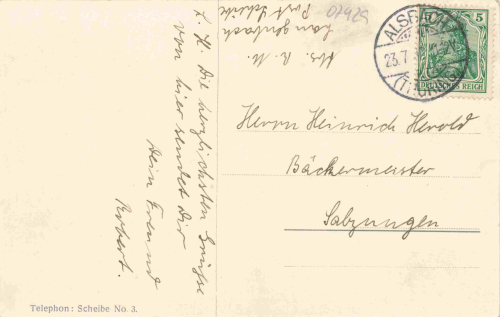 L. H. Die herzlichsten Grüsse
von hier sendet Dir
Dein Freund
Robert.
Telephon: Scheibe No. 3.
Langenbach
Post Scheibe
07429
ALSBACH
23.7.
(THÜRING
5
DEUTSCHES REICH
Herrn Heinrich Herold
Bäckermeister
Salzungen